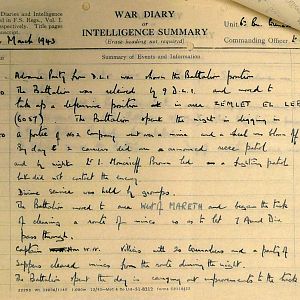 Diaries and Intelligence
in F.S. Regs., Vol. I.
respectively. Title pages
manuscript.
WAR DIARY
OR
INTELLIGENCE SUMMARY
(Erase heading not required).
Unit 6 Bn
Commanding Officer
March 1943
Summary of Events and Information
Advance Party from D.L.I was shown the Battalion position
The Battalion was relieved by 9 D.L.I. and moved to
take up a defensive position at in area ZEMLET EL LEB
(6057) The Battalion spent the night in digging in
A portie of No Company went over a mine and a wheel was blown off
By day 2 carriers did an armoured recce patrol
and by night Lt J. Moncrieff Brown led on a fighting patrol
but did not contact the enemy
Divine service was held by groups.
The Battalion moved to area West of MARETH and began the task
of clearing a route of mines so as to let 7 Armd Div
pass through.
Captain W.W. Vickers with 20 Coy members and a party of
Sappers cleared mines from the route during the night.
The Battalion spent the day in carrying out improvements to the track